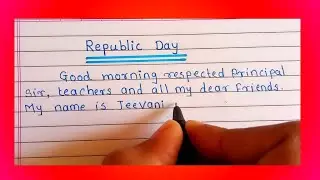 Republic Day
Good morning respected Principal
Sir, teachers and all my dear friends.
My name is Jeevani